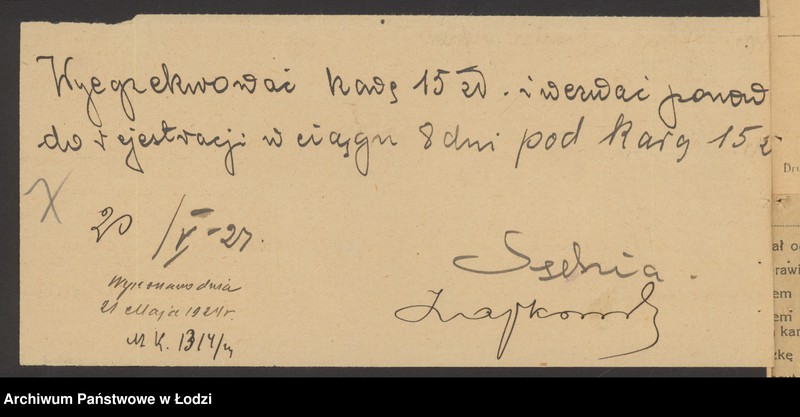 Wyegzekwować karę 15 zł. i wezwać ponow
do rejestracji w ciągu 8 dni pod karą 15 z
20/V-27.
Sędzia.
Wykonano dnia
21 Maja 1927 r.
M K. 1314/27
Dru
ał o
rawi
em
em
kar
zkę
Archiwum Państwowe w Łodzi